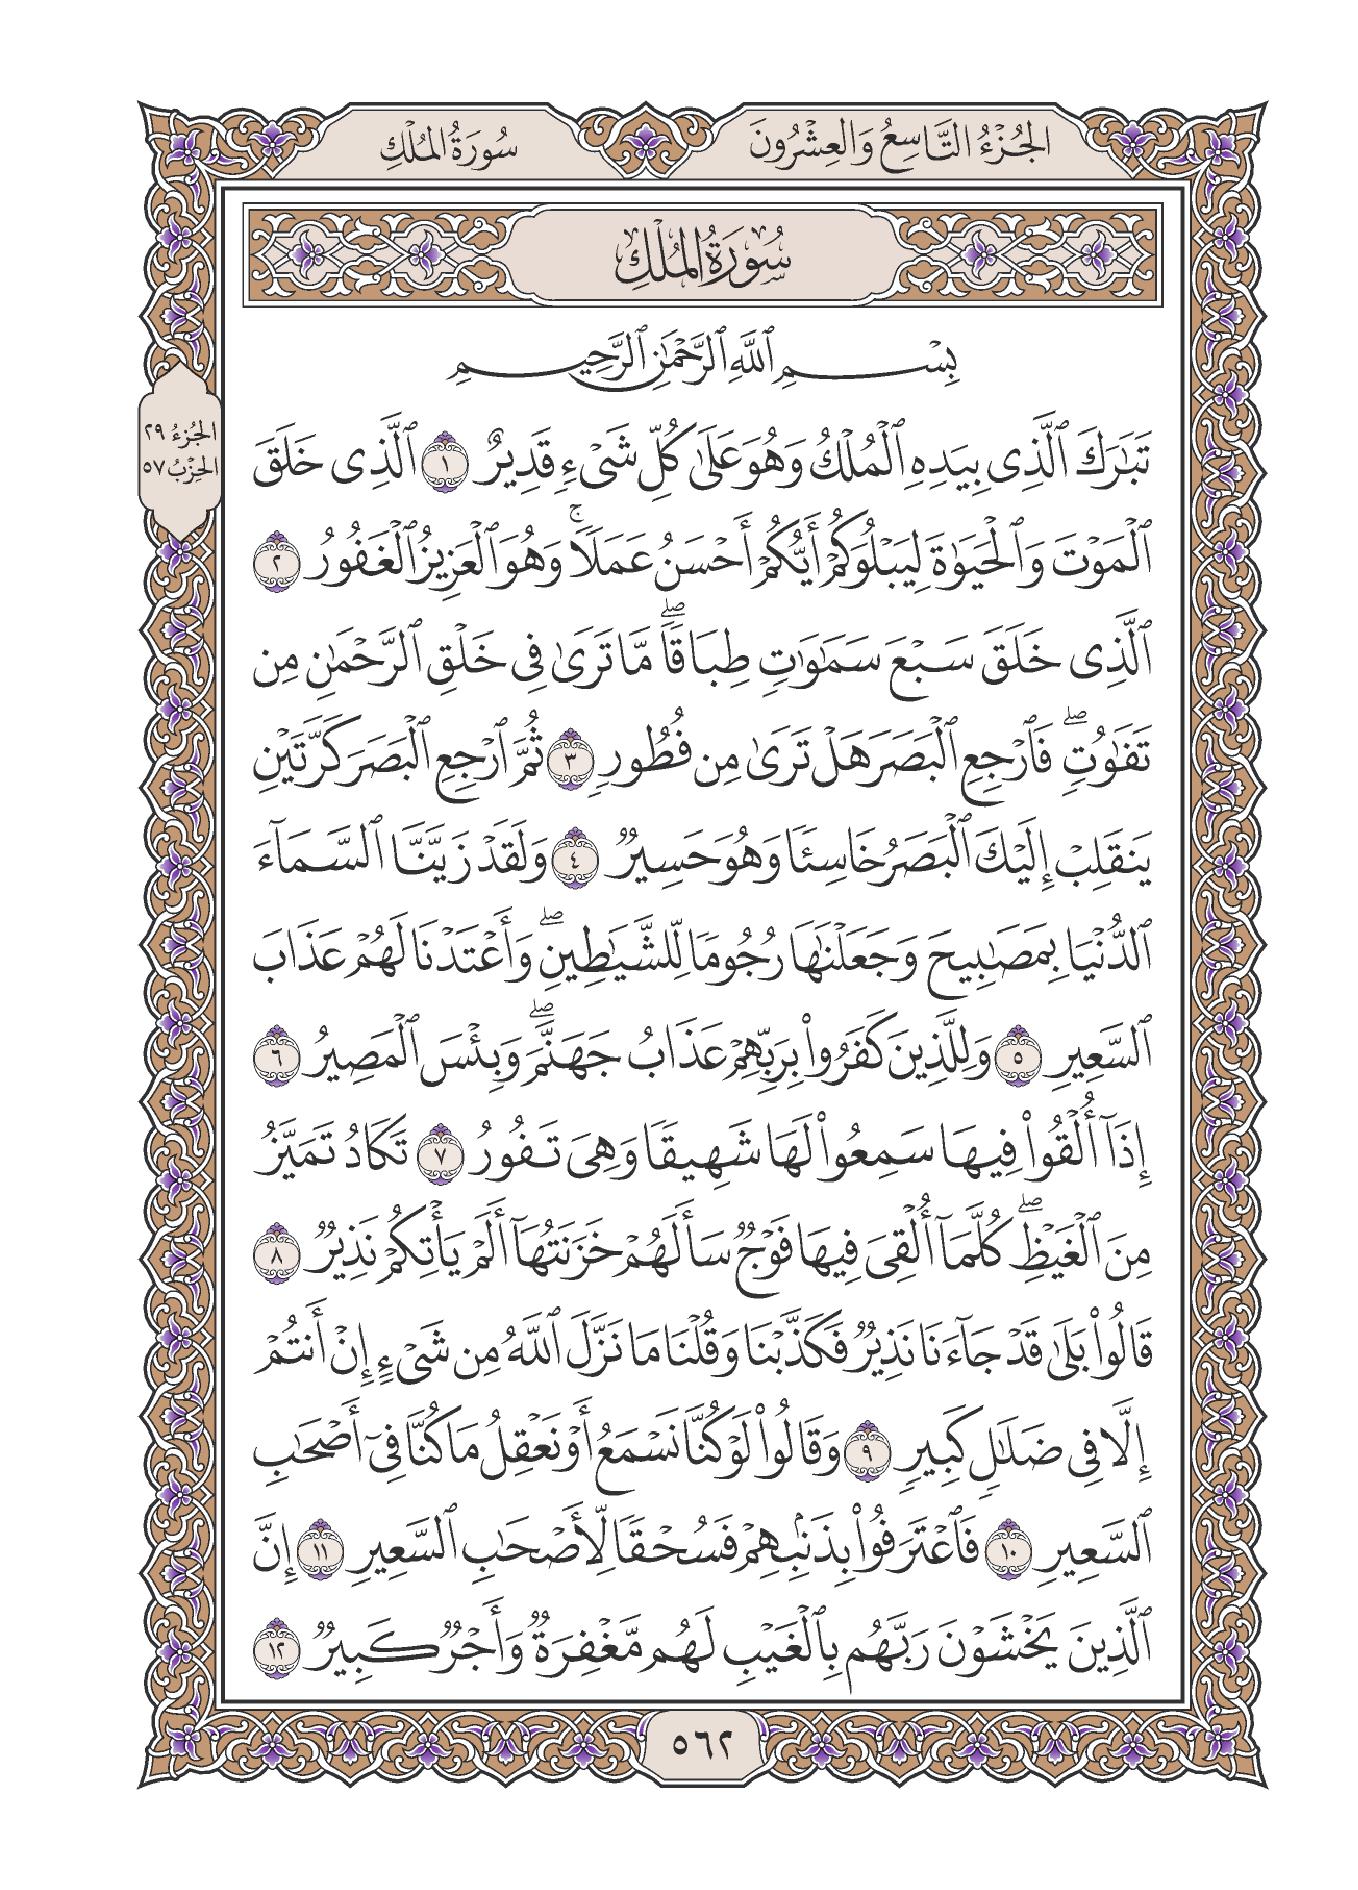 الجُزْءُ التَّاسِعُ وَالعِشْرُونَ
سُورَةُ المُلْكِ
سُورَةُ المُلْكِ
بِسْمِ ٱللَّهِ ٱلرَّحْمَٰنِ ٱلرَّحِيمِ
الجُزْءُ ٢٩
الحِزْبُ ٥٧
تَبَٰرَكَ ٱلَّذِى بِيَدِهِ ٱلْمُلْكُ وَهُوَ عَلَىٰ كُلِّ شَىْءٍ قَدِيرٌ ١ ٱلَّذِى خَلَقَ
ٱلْمَوْتَ وَٱلْحَيَوٰةَ لِيَبْلُوَكُمْ أَيُّكُمْ أَحْسَنُ عَمَلًاۚ وَهُوَ ٱلْعَزِيزُ ٱلْغَفُورُ ٢
ٱلَّذِى خَلَقَ سَبْعَ سَمَٰوَٰتٍ طِبَاقًاۖ مَّا تَرَىٰ فِى خَلْقِ ٱلرَّحْمَٰنِ مِن
تَفَٰوُتٍۖ فَٱرْجِعِ ٱلْبَصَرَ هَلْ تَرَىٰ مِن فُطُورٍ ٣ ثُمَّ ٱرْجِعِ ٱلْبَصَرَ كَرَّتَيْنِ
يَنقَلِبْ إِلَيْكَ ٱلْبَصَرُ خَاسِئًا وَهُوَ حَسِيرٌ ٤ وَلَقَدْ زَيَّنَّا ٱلسَّمَآءَ
ٱلدُّنْيَا بِمَصَٰبِيحَ وَجَعَلْنَٰهَا رُجُومًا لِّلشَّيَٰطِينِۖ وَأَعْتَدْنَا لَهُمْ عَذَابَ
ٱلسَّعِيرِ ٥ وَلِلَّذِينَ كَفَرُوا۟ بِرَبِّهِمْ عَذَابُ جَهَنَّمَۖ وَبِئْسَ ٱلْمَصِيرُ ٦
إِذَآ أُلْقُوا۟ فِيهَا سَمِعُوا۟ لَهَا شَهِيقًا وَهِىَ تَفُورُ ٧ تَكَادُ تَمَيَّزُ
مِنَ ٱلْغَيْظِۖ كُلَّمَآ أُلْقِىَ فِيهَا فَوْجٌ سَأَلَهُمْ خَزَنَتُهَآ أَلَمْ يَأْتِكُمْ نَذِيرٌ ٨
قَالُوا۟ بَلَىٰ قَدْ جَآءَنَا نَذِيرٌ فَكَذَّبْنَا وَقُلْنَا مَا نَزَّلَ ٱللَّهُ مِن شَىْءٍ إِنْ أَنتُمْ
إِلَّا فِى ضَلَٰلٍ كَبِيرٍ ٩ وَقَالُوا۟ لَوْ كُنَّا نَسْمَعُ أَوْ نَعْقِلُ مَا كُنَّا فِىٓ أَصْحَٰبِ
ٱلسَّعِيرِ ١٠ فَٱعْتَرَفُوا۟ بِذَنۢبِهِمْ فَسُحْقًا لِّأَصْحَٰبِ ٱلسَّعِيرِ ١١ إِنَّ
ٱلَّذِينَ يَخْشَوْنَ رَبَّهُم بِٱلْغَيْبِ لَهُم مَّغْفِرَةٌ وَأَجْرٌ كَبِيرٌ ١٢
٥٦٢